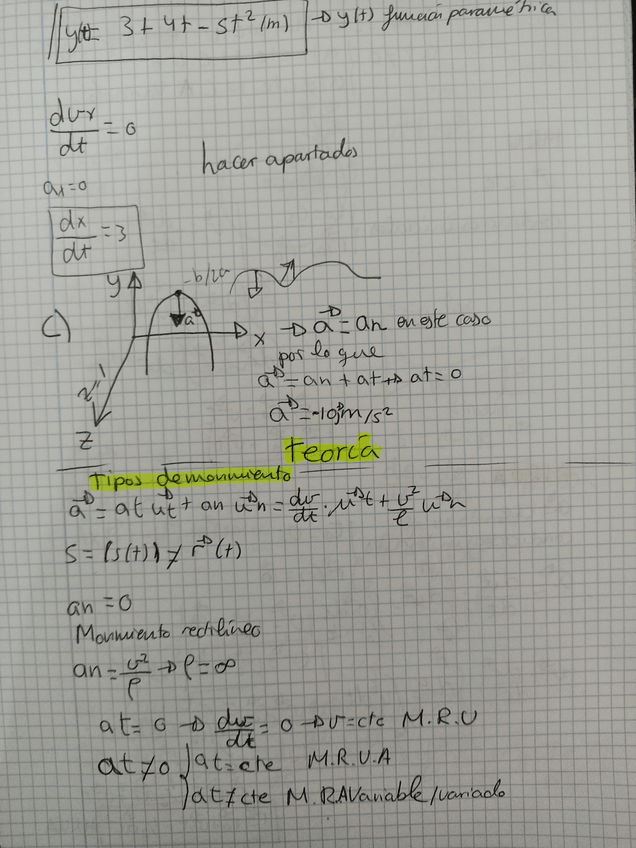 y(t)= 3+4t-5t² (m) → y(t) función paramétrica
dvx/dt = 0
hacer apartados
ax=0
dx/dt = 3
y
-b/2a
a→
c)
x → a→ = an en este caso
por lo que
a→ = an + at → at = 0
a→ = -10j→ m/s²
z
teoría
Tipos de movimiento
a→ = at ut→ + an u→n = dv/dt · u→t + v²/ρ u→n
S = |s(t)| ≠ r→(t)
an = 0
Movimiento rectilíneo
an = v²/ρ → ρ = ∞
at = 0 → dv/dt = 0 → v=cte M.R.U
at ≠ 0 { at = cte M.R.U.A
at ≠ cte M.RAVariable/variado